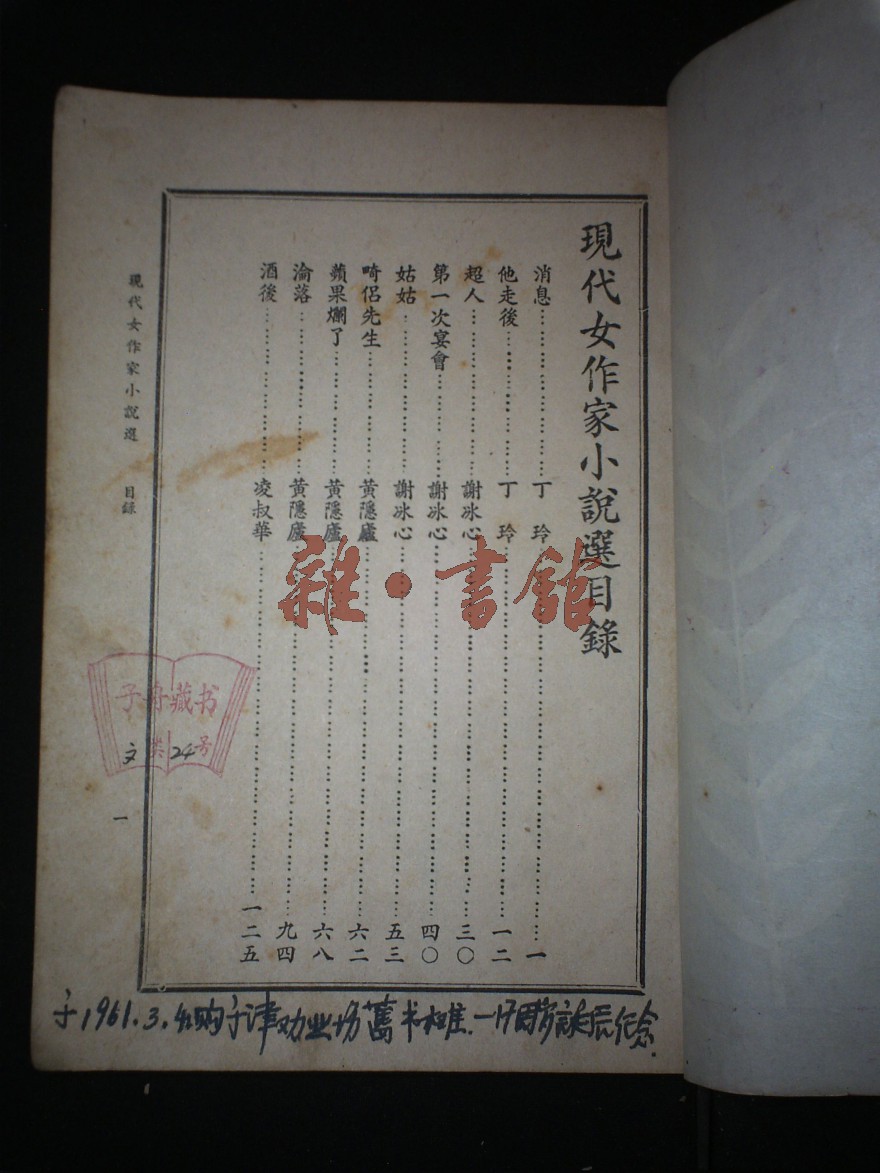 現代女作家小說選目錄
消息……丁　玲……一
他走後……丁　玲……一二
超人……謝冰心……三〇
第一次宴會……謝冰心……四〇
姑姑……謝冰心……五三
畸侶先生……黃隱廬……六二
蘋果爛了……黃隱廬……六八
淪落……黃隱廬……九四
酒後……凌叔華……一二五
現代女作家小說選　目錄
一
雜·書館
子舟藏书
文类24号
1961.3.
购于津劝业场舊书